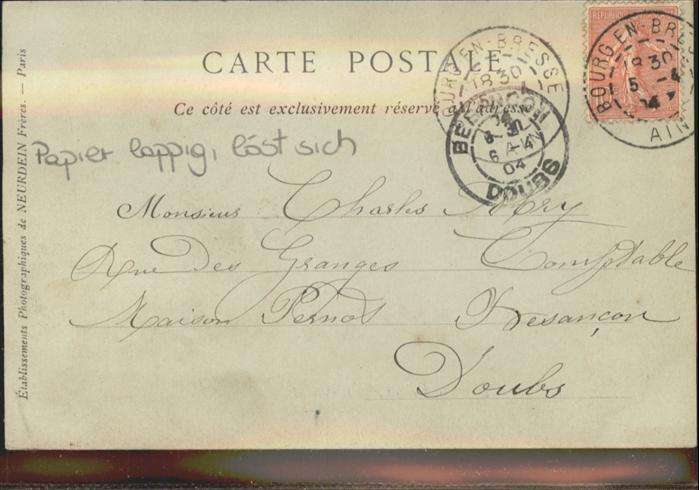 CARTE POSTALE
Ce côté est exclusivement réservé à l'adresse
Papier lappig, löst sich
Monsieur Charles
Rue des Granges Comptable
Maison Pernod Besançon
Doubs
Établissements Photographiques de NEURDEIN Frères. — Paris
BOURG-EN-BRESSE
18 30
BOURG-EN-BR
18 30
5 -4
04
AIN
8-30
6 -4
04
DOUBS